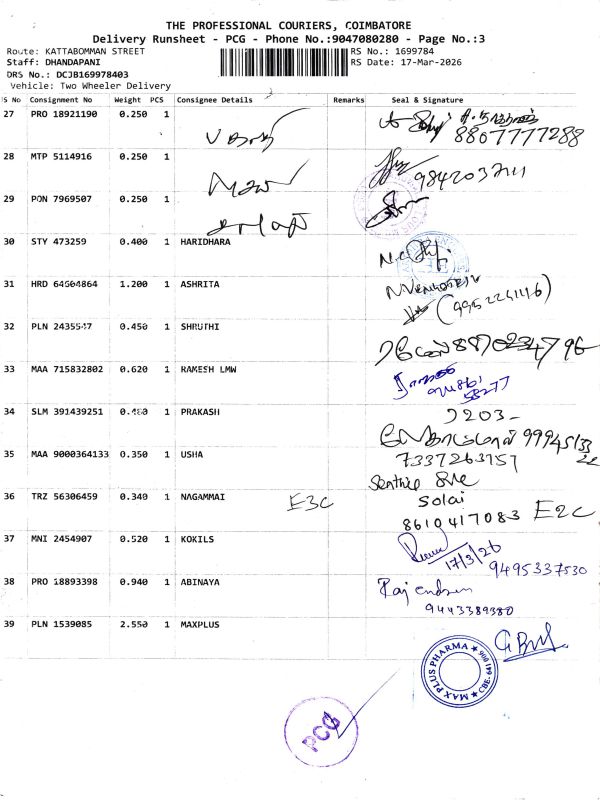 THE PROFESSIONAL COURIERS, COIMBATORE
Delivery Runsheet - PCG - Phone No.:9047080280 - Page No.:3
Route: KATTABOMMAN STREET RS No.: 1699784
Staff: DHANDAPANI RS Date: 17-Mar-2026
DRS No.: DCJB169978403
Vehicle: Two Wheeler Delivery
S No Consignment No Weight PCS Consignee Details Remarks Seal & Signature
27 PRO 18921190 0.250 1
8807777288
28 MTP 5114916 0.250 1
29 PON 7969507 0.250 1
30 STY 473259 0.400 1 HARIDHARA
31 HRD 64604864 1.200 1 ASHRITA
(9952241146)
32 PLN 2435547 0.450 1 SHRUTHI
33 MAA 715832802 0.620 1 RAMESH LMW
34 SLM 391439251 0.480 1 PRAKASH
35 MAA 9000364133 0.350 1 USHA
7337263757
36 TRZ 56306459 0.340 1 NAGAMMAI E3C
Solai
8610417083 E2C
37 MNI 2454907 0.520 1 KOKILS
17/3/26
9495337530
38 PRO 18893398 0.940 1 ABINAYA
Rajendran
9443389380
39 PLN 1539085 2.550 1 MAXPLUS
MAX PLUS PHARMA CBE-641 006
PCG